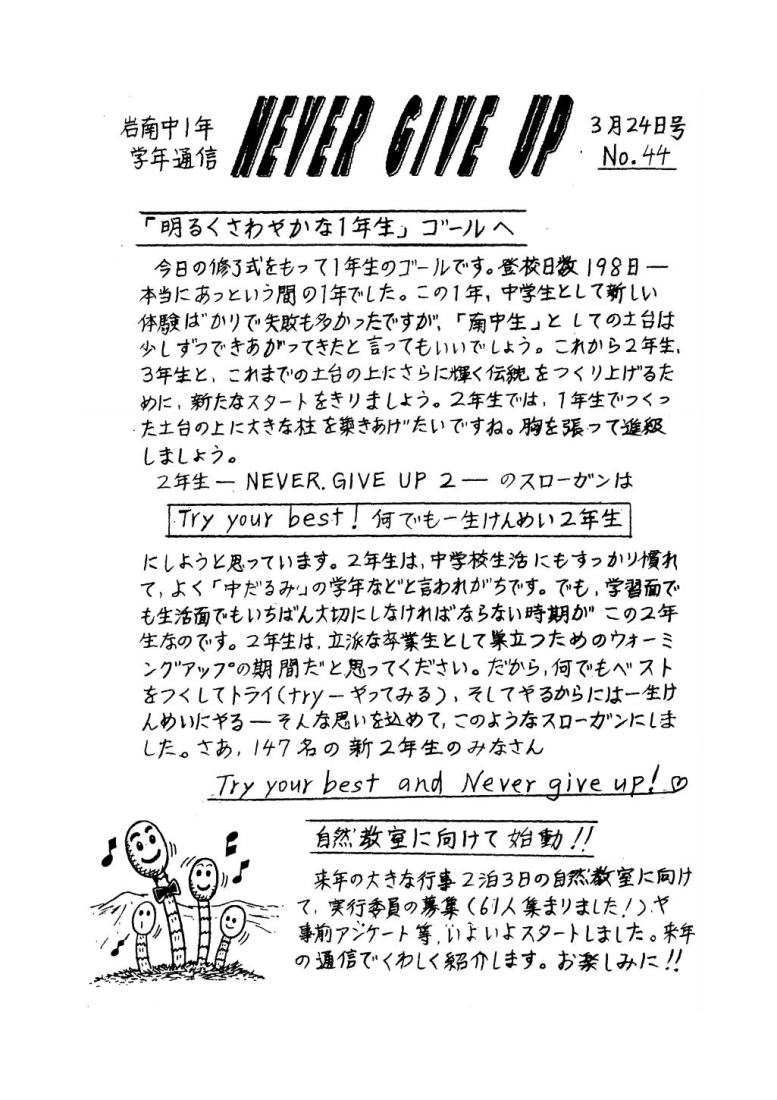 岩南中1年
学年通信
NEVER GIVE UP
3月24日号
No.44
「明るくさわやかな1年生」ゴールへ
今日の修了式をもって1年生のゴールです。登校日数198日―
本当にあっという間の1年でした。この1年,中学生として新しい
体験ばかりで失敗も多かったですが,「南中生」としての土台は
少しずつできあがってきたと言ってもいいでしょう。これから2年生,
3年生と,これまでの土台の上にさらに輝く伝統をつくり上げるた
めに,新たなスタートをきりましょう。2年生では,1年生でつくっ
た土台の上に大きな柱を築きあげたいですね。胸を張って進級
しましょう。
2年生― NEVER GIVE UP 2 ―のスローガンは
Try your best! 何でも一生けんめい2年生
にしようと思っています。2年生は,中学校生活にもすっかり慣れ
て,よく「中だるみ」の学年などと言われがちです。でも,学習面で
も生活面でもいちばん大切にしなければならない時期がこの2年
生なのです。2年生は,立派な卒業生として巣立つためのウォーミ
ングアップの期間だと思ってください。だから,何でもベスト
をつくしてトライ(try―やってみる),そしてやるからには一生け
んめいにやる―そんな思いを込めて,このようなスローガンにしま
した。さあ,147名の新2年生のみなさん
Try your best and Never give up!♡
自然教室に向けて始動!!
来年の大きな行事2泊3日の自然教室に向け
て,実行委員の募集(61人集まりました!)や
事前アンケート等,いよいよスタートしました。来年
の通信でくわしく紹介します。お楽しみに!!